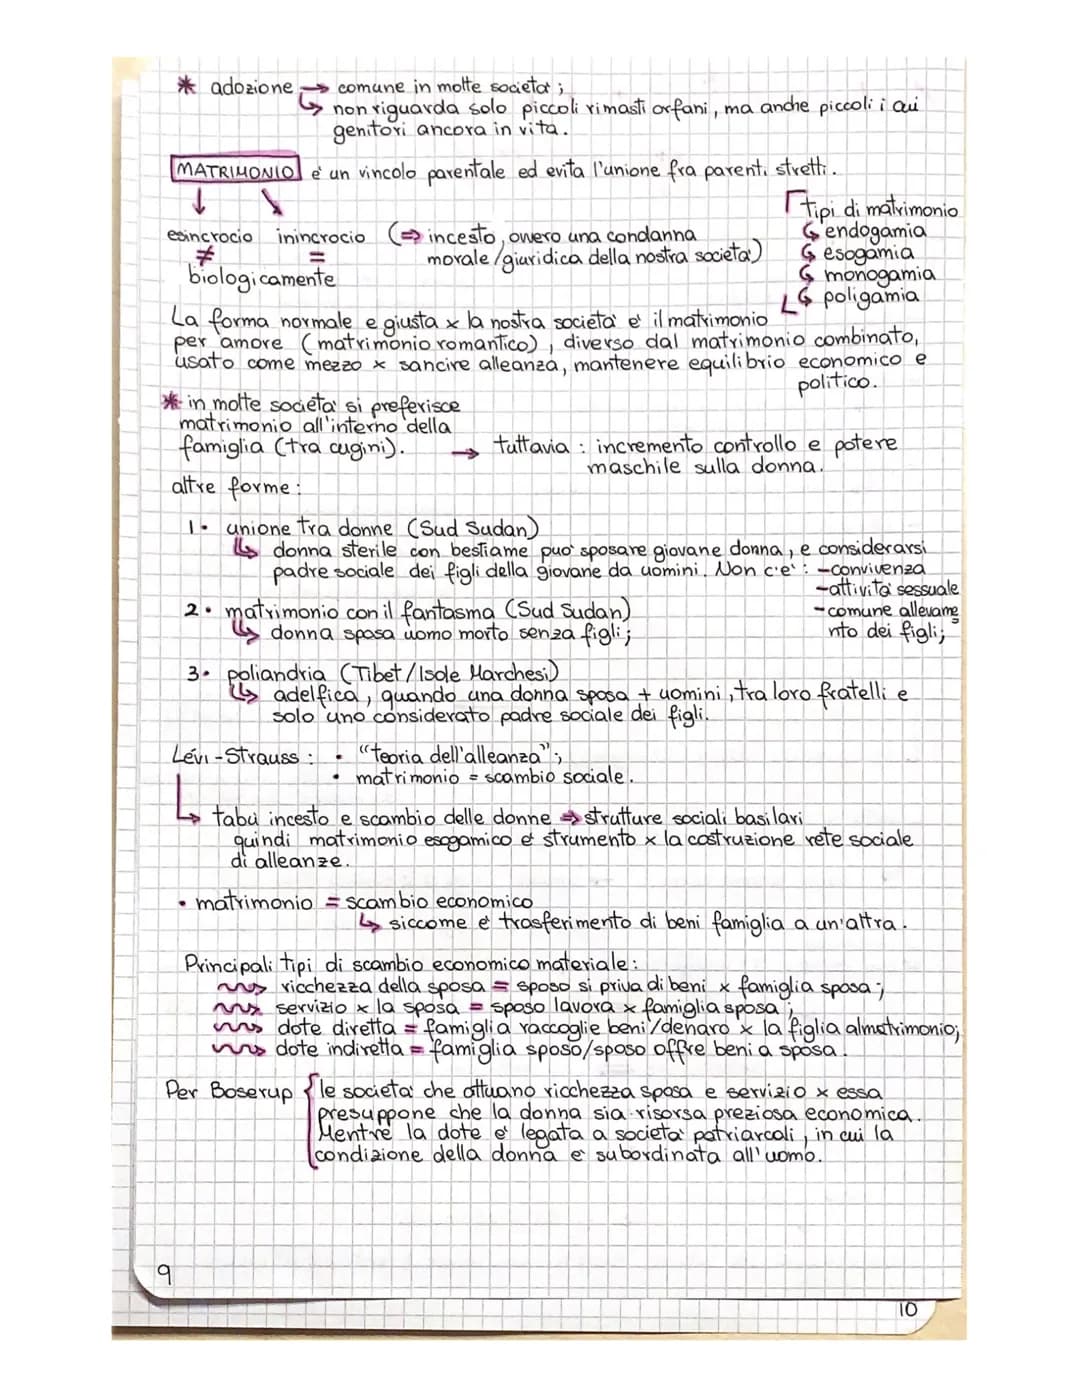 * adozione → comune in molte societa';
↳ non riguarda solo piccoli rimasti orfani, ma anche piccoli i cui
genitori ancora in vita.
MATRIMONIO e' un vincolo parentale ed evita l'unione fra parenti stretti.
↓ ↘
esincrocio inincrocio (⇒ incesto, ovvero una condanna
≠ = morale/giuridica della nostra societa')
biologicamente
tipi di matrimonio
↳ endogamia
↳ esogamia
↳ monogamia
↳ poligamia
La forma normale e giusta x la nostra societa' e' il matrimonio
per amore (matrimonio romantico), diverso dal matrimonio combinato,
usato come mezzo x sancire alleanza, mantenere equilibrio economico e
politico.
* in molte societa' si preferisce
matrimonio all'interno della
famiglia (tra cugini). → tuttavia : incremento controllo e potere
maschile sulla donna.
altre forme:
1. unione tra donne (Sud Sudan)
↳ donna sterile con bestiame puo' sposare giovane donna, e considerarsi
padre sociale dei figli della giovane da uomini. Non c'e' : -convivenza
-attivita' sessuale
-comune allevame
nto dei figli;
2. matrimonio con il fantasma (Sud Sudan)
↳ donna sposa uomo morto senza figli;
3. poliandria (Tibet/Isole Marchesi)
↳ adelfica, quando una donna sposa + uomini, tra loro fratelli e
solo uno considerato padre sociale dei figli.
Lévi-Strauss : • "teoria dell'alleanza";
• matrimonio = scambio sociale.
↳ tabù incesto e scambio delle donne ⇒ strutture sociali basilari
quindi matrimonio esogamico e' strumento x la costruzione rete sociale
di alleanze.
• matrimonio = scambio economico
↳ siccome e' trasferimento di beni famiglia a un'altra.
Principali tipi di scambio economico materiale:
ricchezza della sposa = sposo si priva di beni x famiglia sposa;
servizio x la sposa = sposo lavora x famiglia sposa;
dote diretta = famiglia raccoglie beni/denaro x la figlia al matrimonio;
dote indiretta = famiglia sposo/sposo offre beni a sposa.
Per Boserup { le societa' che attuano ricchezza sposa e servizio x essa
presuppone che la donna sia risorsa preziosa economica.
Mentre la dote e' legata a societa' patriarcali, in cui la
condizione della donna e' subordinata all'uomo.
9
10